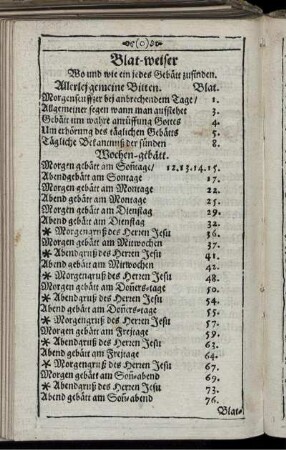 (0)
Blat-weiser
Wo und wie ein jedes Gebätt zufinden.
Allerley gemeine Bitten. Blat.
Morgenseuffzer bej anbrechendem Tage/ 1.
Allgemeiner segen wann man aufstehet 3.
Gebätt um wahre anrüffung Gottes 4.
Um erhörung des täglichen Gebätts 5.
Tägliche Bekantnuß der sünden 8.
Wochen-gebätt.
Morgen gebätt am Sontage/ 12.13.14.15.
Abendgebätt am Sontage 17.
Morgen gebätt am Montage 22.
Abend gebätt am Montage 25.
Morgen gebätt am Dienstag 29.
Abend gebätt am Dienstag 32.
* Morgengruß des Herren Jesu 36.
Morgen gebätt am Mittwochen 37.
* Abendgruß des Herren Jesu 41.
Abend gebätt am Mitwochen 42.
* Morgengruß des Herren Jesu 48.
Morgen gebätt am Doñers-tage 50.
* Abendgruß des Herren Jesu 54.
Abend gebätt am Doñers-tage 55.
* Morgengruß des Herren Jesu 57.
Morgen gebätt am Frejtage 59.
* Abendgruß des Herren Jesu 63.
Abend gebätt am Frejtage 64.
* Morgengruß des Herren Jesu 67.
Morgen gebätt am Soñ-abend 69.
* Abendgruß des Herren Jesu 73.
Abend gebätt am Soñ-abend 76.
Blat-